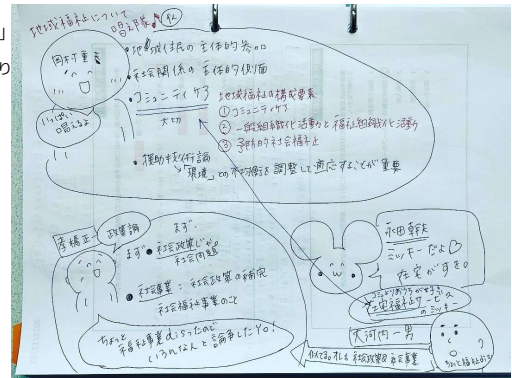 」
り
地域福祉について
唱え隊♪
岡村重夫
いっぱい
唱えるよ
・地域住民の主体的参加
・社会関係の主体的側面
・コミュニティケア
大切
地域福祉の構成要素
①コミュニティケア
②一般組織化活動と福祉組織化活動
③予防的社会福祉
・援助技術論
「環境」との不均衡を調整して適応することが重要
孝橋正一
政策論
まず
まず・社会政策じゃ。
社会問題
・社会事業：社会政策の補充
社会福祉事業のこと
ちょっと
福祉事業disったので
いろんな人と論争したYo!
永田幹夫
ミッキーだよ♡
在宅がすき。
在宅福祉サービス
のミッキー
大河内一男
似てるオレも 社会政策 社会事業